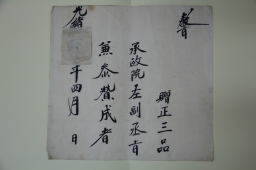 贈正三品
承政院左副丞旨
兼泰贊成者
光緖 年四月 日